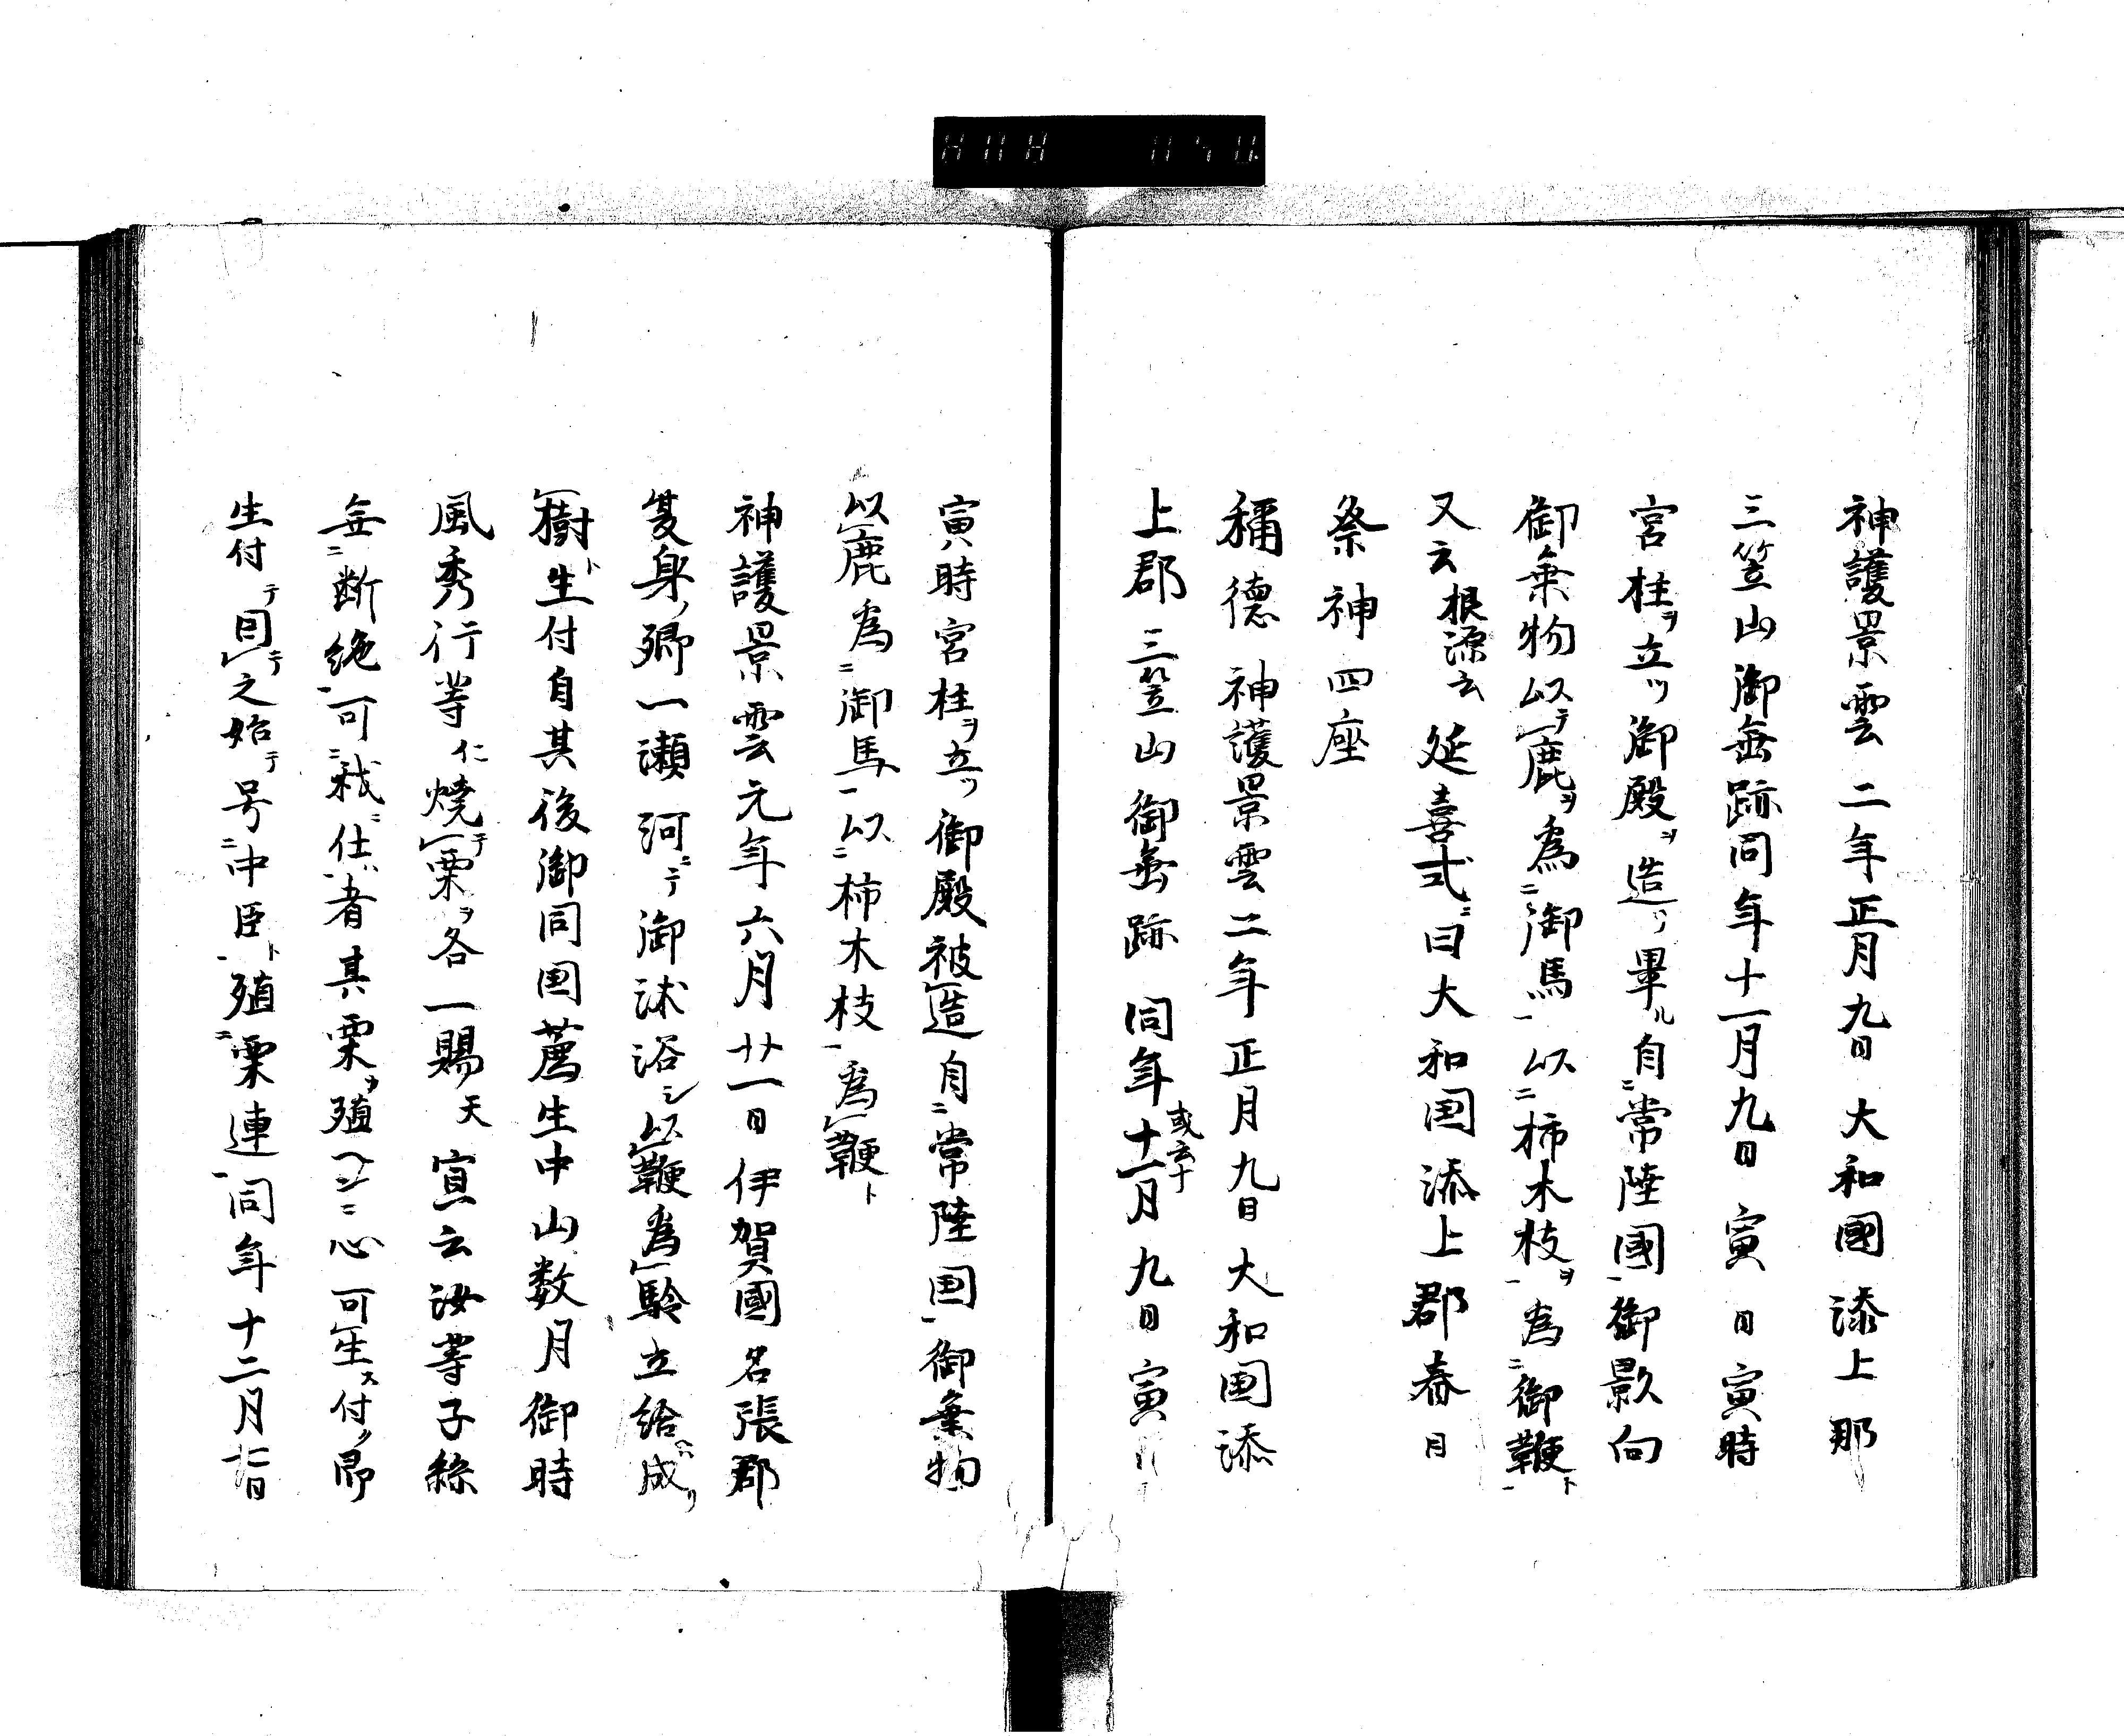 神護景雲二年正月九日大和國添上郡
三笠山御垂跡同年十一月九日寅日寅時
宮柱ヲ立ツ御殿ヲ造リ畢ル自ニ常陸國一御影向
御乗物以テレ鹿ヲ為ニ御馬一以ニ柿木枝ヲ一為ニ御鞭ト一
又云根源云延喜式ニ曰大和国添上郡春日
祭神四座
稱德神護景雲二年正月九日大和国添
上郡三笠山御垂跡同年十一月或云十九日寅
寅時宮柱ヲ立ツ御殿被レ造自ニ常陸国一御乗物
以レ鹿為ニ御馬一以ニ柿木枝一為レ鞭ト
神護景雲元年六月廿一日伊賀國名張郡
夏身ノ郷一瀬河ニテ御沐浴シ以レ鞭為レ験立給ヘハ成リ
レ樹ト生付自其後御同国薦生中山数月御時
風秀行等仁燒テレ栗ヲ各一賜天宣云汝等子絲
無ニ断絶一可ニ我ニ仕一者其栗ヲ殖ヘヨニ心可レ生ス付ク即
生付テ因レテ之始テ号ニ中臣ト一殖ニ栗連一同年十二月七日